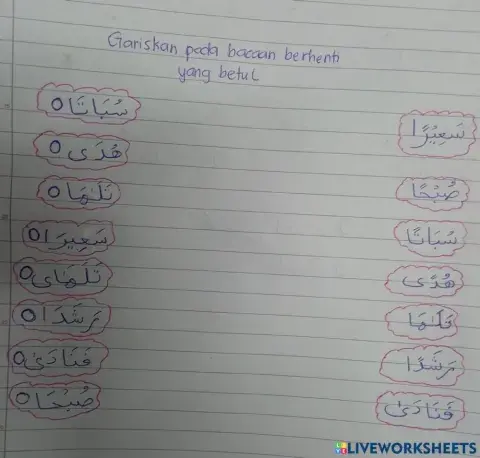 Gariskan pada bacaan berhenti
yang betul
سُبَاتَا ٥
هُدَى ٥
تَلَىٰهَا ٥
سَعِيرَا ٥
تَلَهَاى ٥
رَشَدَا ٥
فَنَادَىٰ ٥
صُبْحَا ٥
سَعِيْرًا
صُبْحًا
سُبَاتًا
هُدًى
تَلَىٰهَا
رَشَدًا
فَنَادَىٰ
LIVEWORKSHEETS